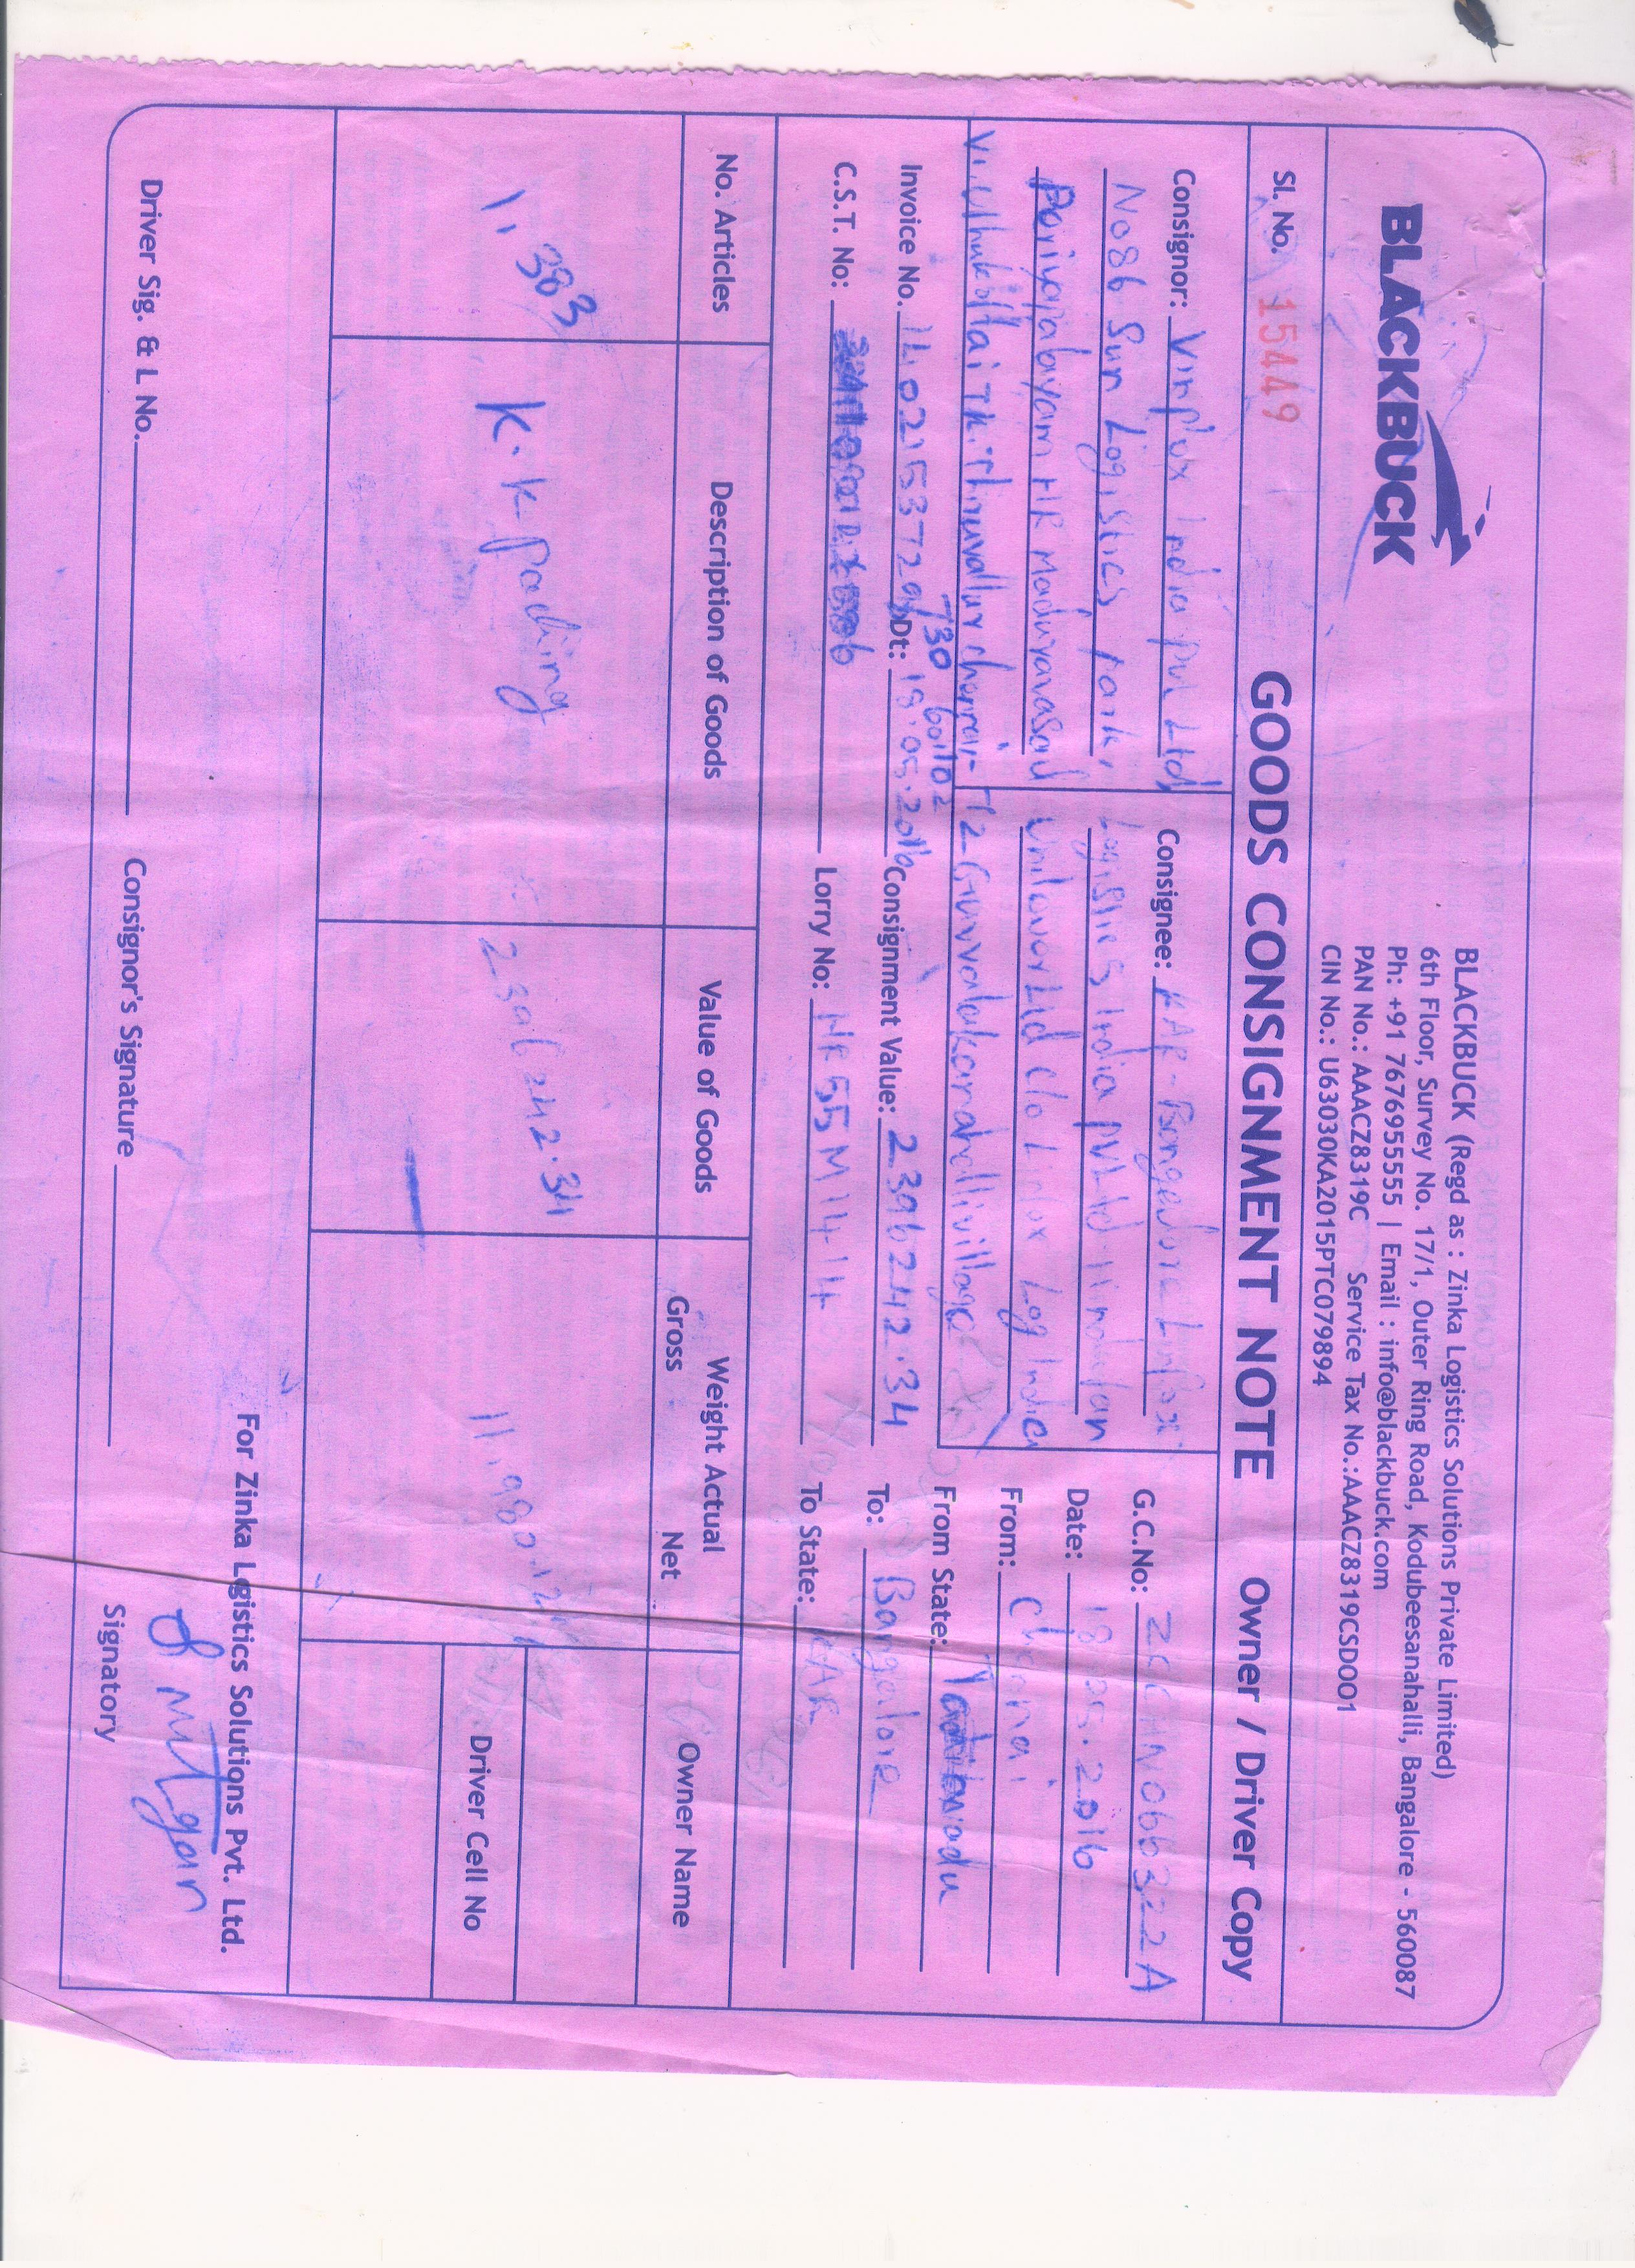 BLACKBUCK
BLACKBUCK (Regd as : Zinka Logistics Solutions Private Limited)
6th Floor, Survey No. 17/1, Outer Ring Road, Kodubeesanahalli, Bangalore - 560087
Ph: +91 7676955555 | Email : info@blackbuck.com
PAN No.: AAACZ8319C Service Tax No.:AAACZ8319CSD001
CIN No.: U63030KA2015PTC079894
Sl. No. 15449 GOODS CONSIGNMENT NOTE Owner / Driver Copy
Consignor: India Pvt Ltd
No86 Sun Logistics park,
Periyapalayam HR Maduravasal
Vi. Uthukottai TK. Thiruvallur chennai-
730 601102
Consignee: KAR - Bangalore Linfox
Logistics India pvt Ltd Hindustan
Unilever Ltd C/o Linfox Log India
72 Guvvalakanahalli village
G.C.No: ZLCHN066322A
Date: 18.05.2016
From: Chennai
From State:
To: Bangalore
To State: KAR
Invoice No. Dt: 18.05.2016 Consignment Value: 2396242.34
C.S.T. No: Lorry No: HR55M1414
No. Articles Description of Goods Value of Goods Weight Actual Owner Name
Gross Net
1,383 K.K packing 2396242.34 11,980.12
Driver Cell No
For Zinka Lgistics Solutions Pvt. Ltd.
Driver Sig. & L No. Consignor's Signature Signatory